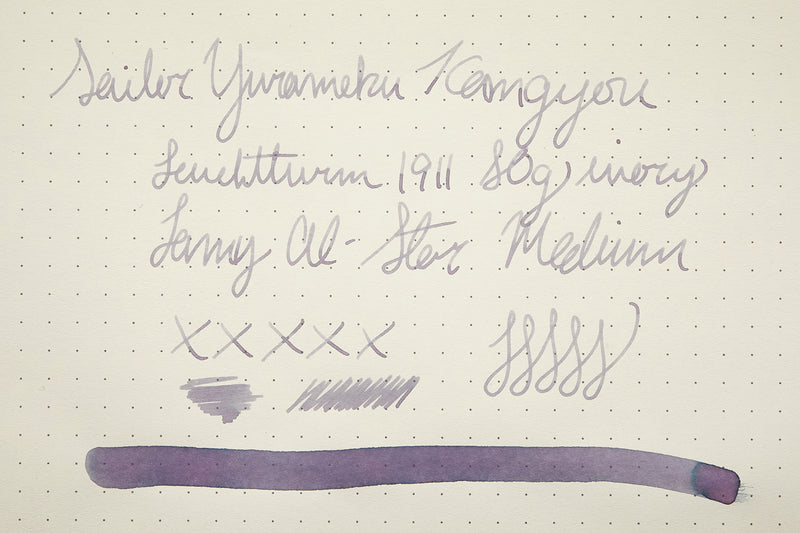 Sailor Yurameku Kangyou
Leuchtturm 1917 80g, ivory
Lamy Al-Star Medium
XXXXX